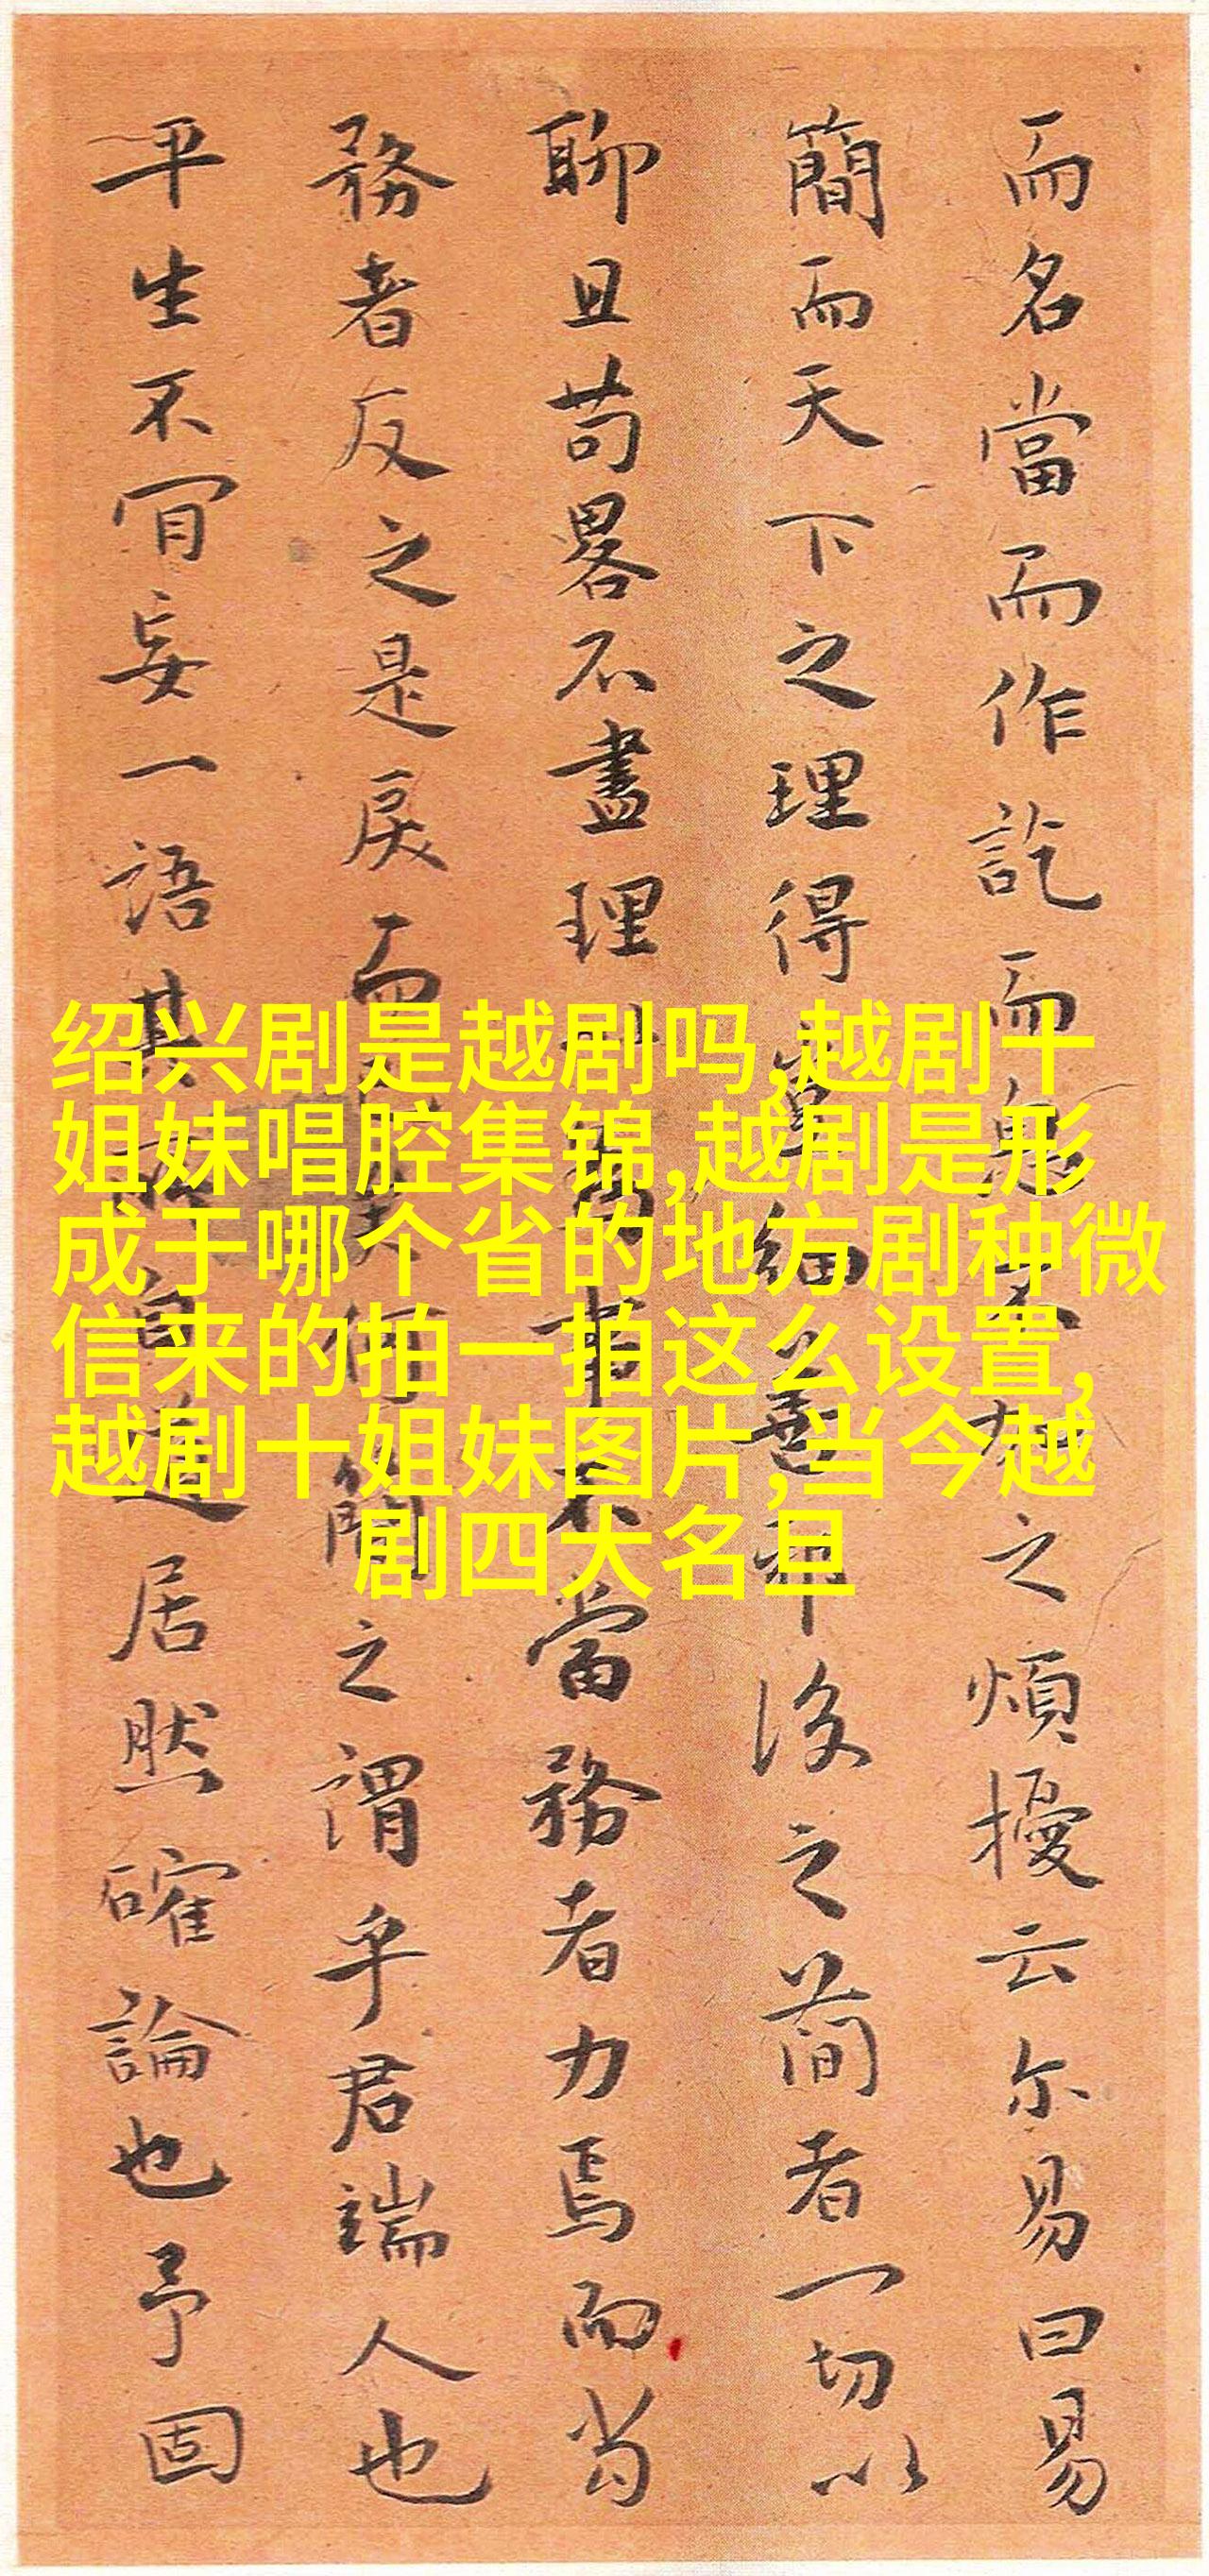 而名當而作訖而鬼不加之煩擾云尔易曰易
簡而天下之理得草細善布後之简者一切以
聊且苟畧不盡理萬事不當務者力焉而當
務者反之是戾而失何簡之謂乎君端人也
平生不肎妄一語其所自述居然確論也予固
绍兴剧是越剧吗,越剧十
姐妹唱腔集锦,越剧是形
成于哪个省的地方剧种微
信来的拍一拍这么设置,
越剧十姐妹图片,当今越
剧四大名旦